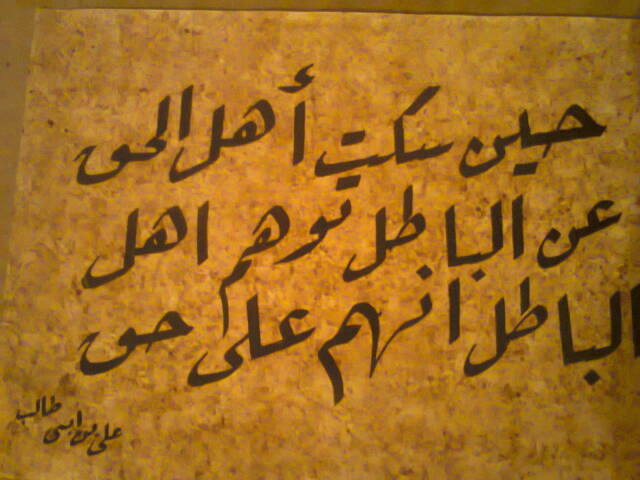 حين سكت أهل الحق
عن الباطل توهم اهل
الباطل انهم على حق
علي بن ابي طالب